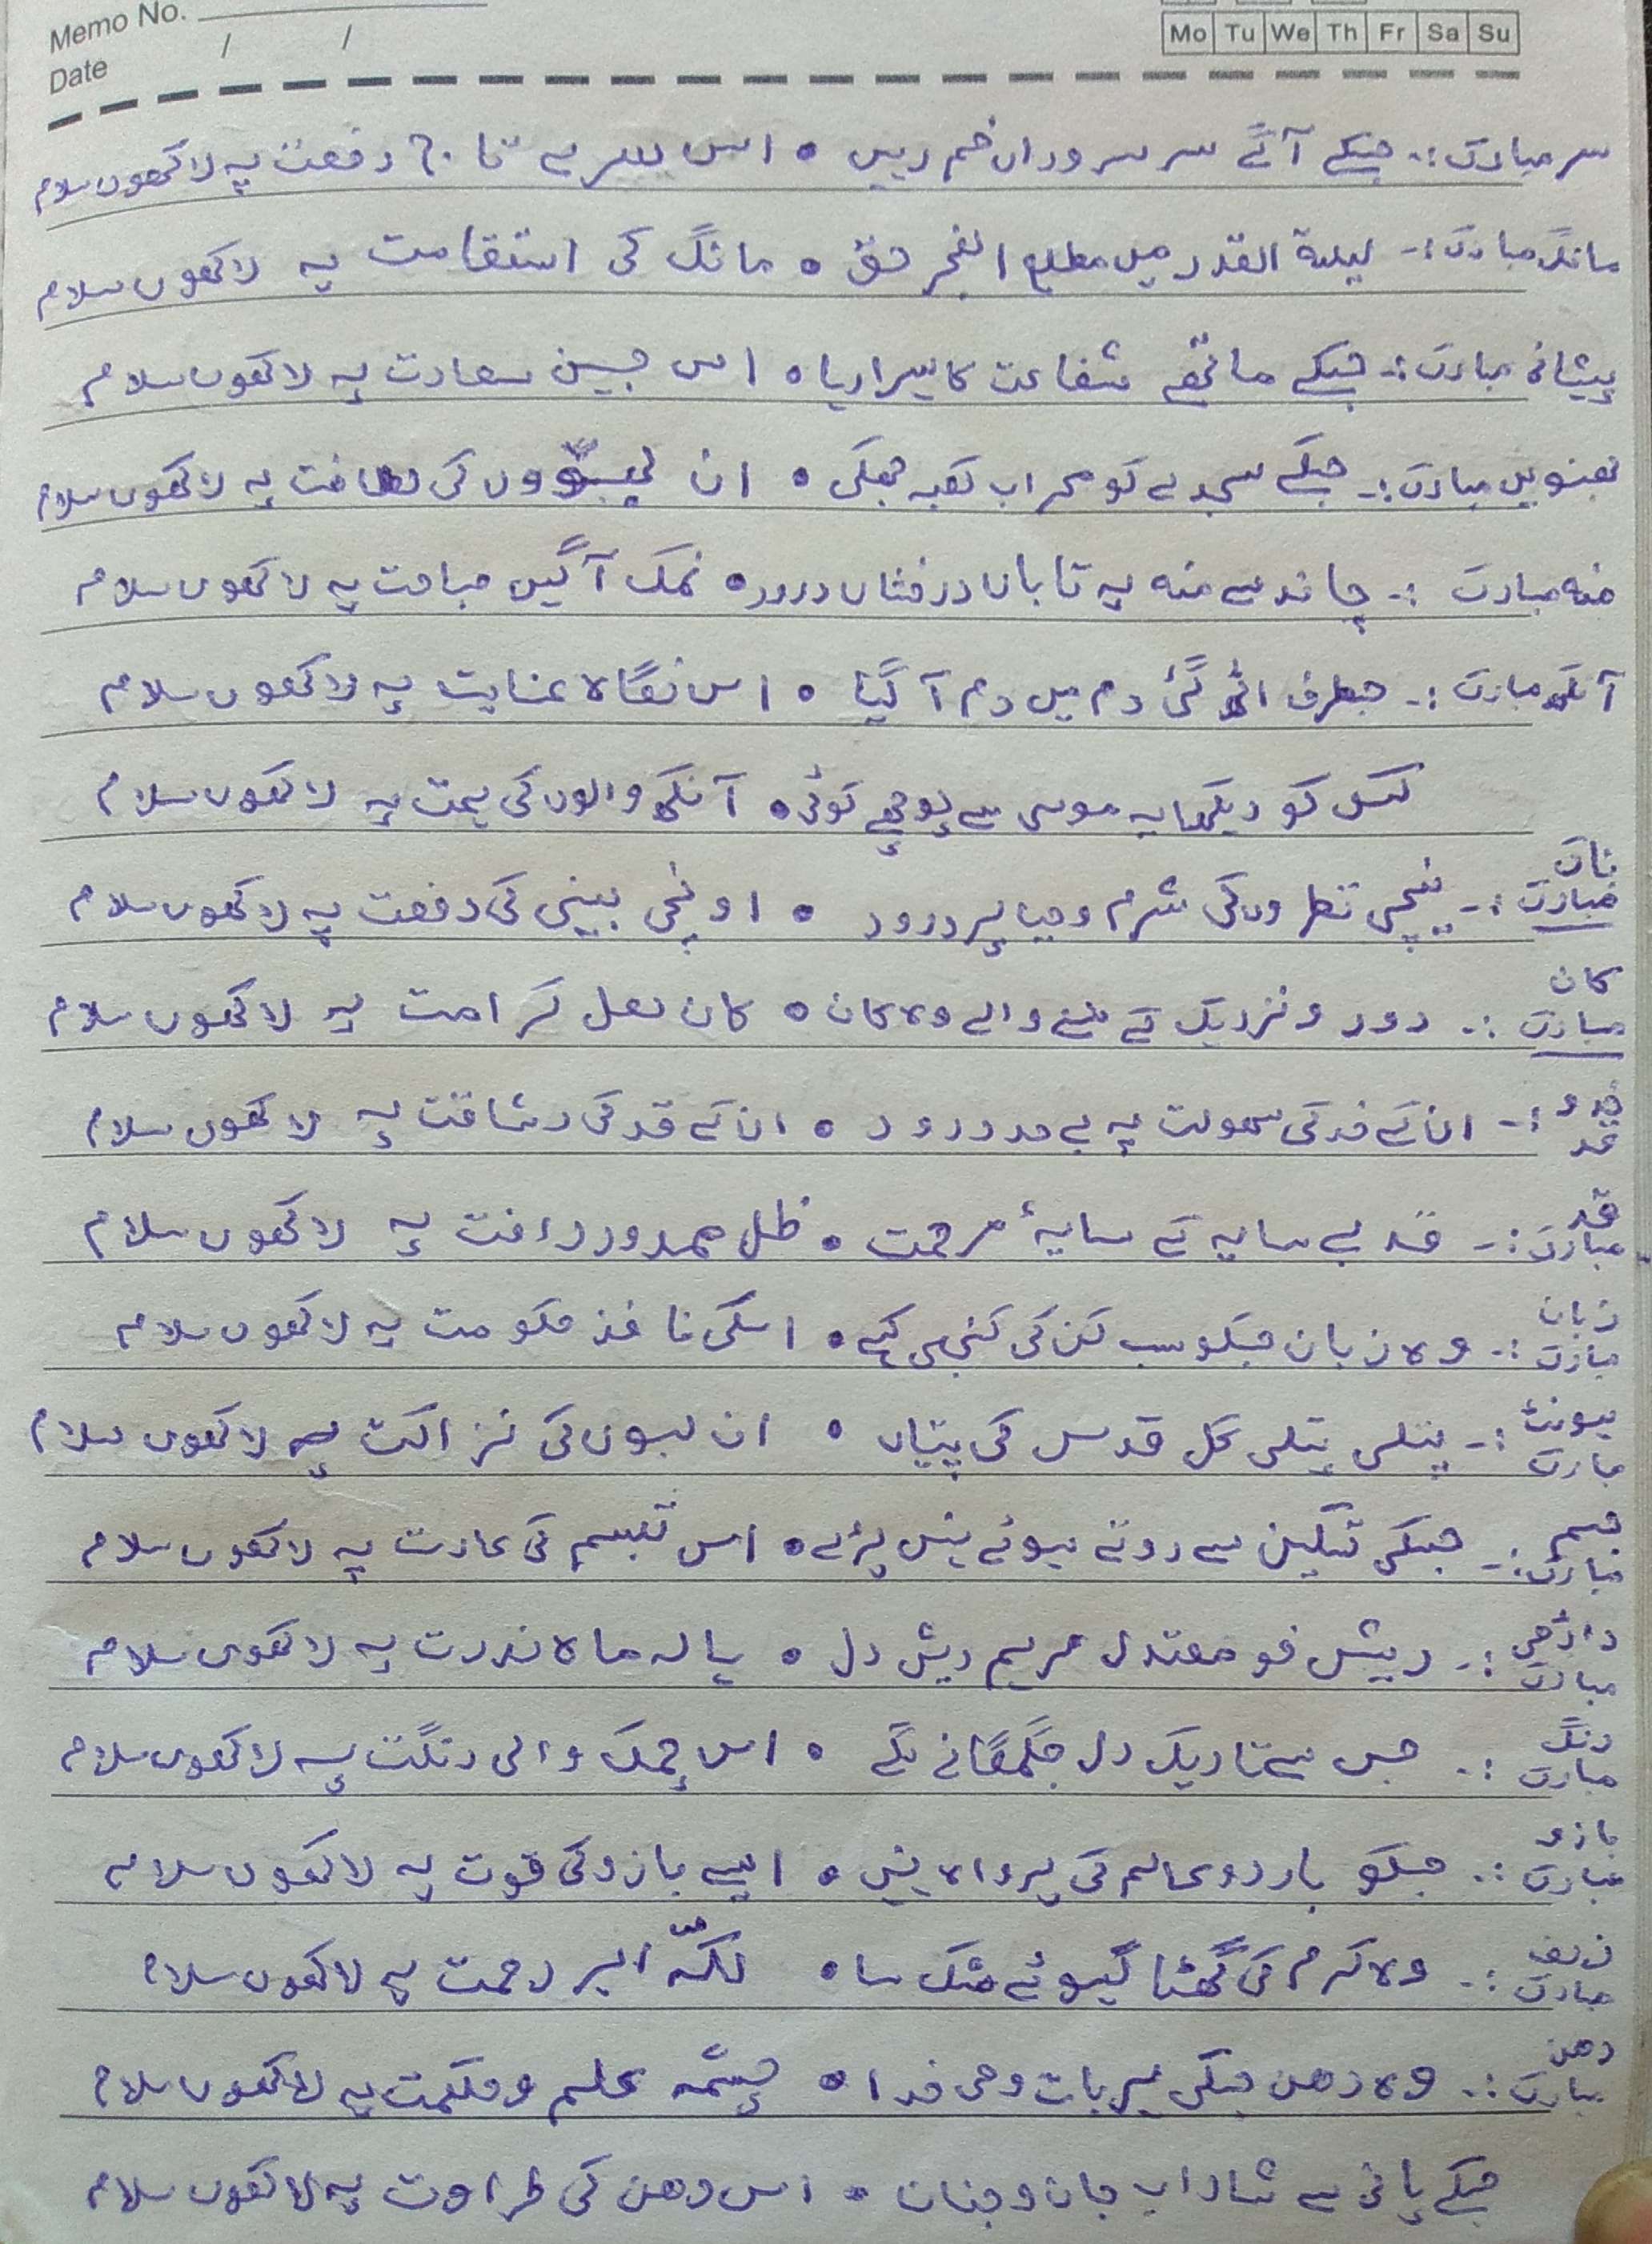 Memo No.
Date / /
Mo Tu We Th Fr Sa Su
سر مبارک :۔ جسکے آگے سر سروراں خم رہیں ٥ اس سر تاج رفعت پہ لاکھوں سلام
مانگ مبارک :۔ لیلۃ القدر میں مطلع الفجر حق ٥ مانگ کی استقامت پہ لاکھوں سلام
پیشانی مبارک :۔ جسکے ماتھے شفاعت کا سہرا رہا ٥ اس جبین سعادت پہ لاکھوں سلام
بھنویں مبارک :۔ جسکے سجدے کو محراب کعبہ جھکی ٥ ان بھنووں کی لطافت پہ لاکھوں سلام
منہ مبارک :۔ چاند سے منہ پہ تاباں درخشاں درود ٥ نمک آگیں صباحت پہ لاکھوں سلام
آنکھ مبارک :۔ جطرف اٹھ گئی دم میں دم آ گیا ٥ اس نگاہ عنایت پہ لاکھوں سلام
کس کو دیکھا یہ موسی سے پوچھے کوئی ٥ آنکھ والوں کی ہمت پہ لاکھوں سلام
ناک مبارک :۔ نیچی نظروں کی شرم و حیا پر درود ٥ اونچی بینی کی رفعت پہ لاکھوں سلام
کان مبارک :۔ دور و نزدیک کے سننے والے وہ کان ٥ کان لعل کرامت پہ لاکھوں سلام
خد و قد :۔ ان کے خد کی سہولت پہ بے حد درود ٥ ان کے قد کی رشاقت پہ لاکھوں سلام
قد مبارک :۔ قد بے سایہ کے سایۂ مرحمت ٥ ظل ممدود رافت پہ لاکھوں سلام
زبان مبارک :۔ وہ زبان جسکو سب کن کی کنجی کہے ٥ اسکی نافذ حکومت پہ لاکھوں سلام
ہونٹ مبارک :۔ پتلی پتلی گل قدس کی پتیاں ٥ ان لبوں کی نزاکت پہ لاکھوں سلام
جسم مبارک :۔ جسکی تسکین سے روتے ہوئے ہنس پڑے ٥ اس تبسم کی عادت پہ لاکھوں سلام
داڑھی مبارک :۔ ریش خو معتدل مرہم ریش دل ٥ ہالہ ماہ ندرت پہ لاکھوں سلام
رنگ مبارک :۔ جس سے تاریک دل جگمگانے لگے ٥ اس چمک والی رنگت پہ لاکھوں سلام
بازو مبارک :۔ جسکو بار دو عالم کی پرواہ نہیں ٥ ایسے بازو کی قوت پہ لاکھوں سلام
زلف مبارک :۔ وہ کرم کی گھٹا گیسوئے مشک سا ٥ لکۂ ابر رحمت پہ لاکھوں سلام
دھن مبارک :۔ وہ دھن جسکی ہر بات وحی خدا ٥ چشمہ علم و حکمت پہ لاکھوں سلام
جسکے پانی سے شاداب جان و جناں ٥ اس دھن کی طراوت پہ لاکھوں سلام